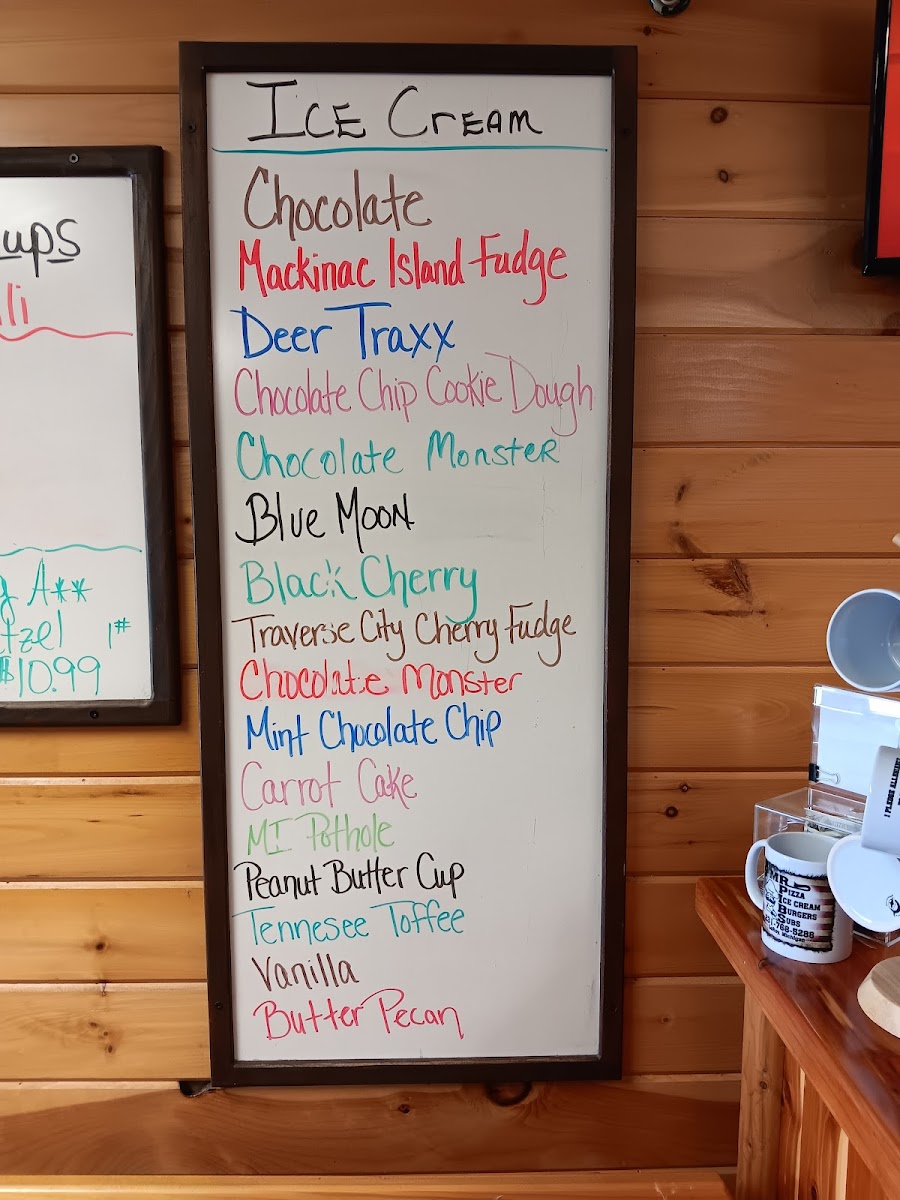 Ice Cream
Chocolate
Mackinac Island Fudge
Deer Traxx
Chocolate Chip Cookie Dough
Chocolate Monster
Blue Moon
Black Cherry
Traverse City Cherry Fudge
Chocolate Monster
Mint Chocolate Chip
Carrot Cake
MI Pothole
Peanut Butter Cup
Tennesee Toffee
Vanilla
Butter Pecan
ups
li
A**
tzel 1#
$10.99
MR
Pizza
Ice Cream
Burgers
Subs
768-5288
Michigan
I PLEDGE